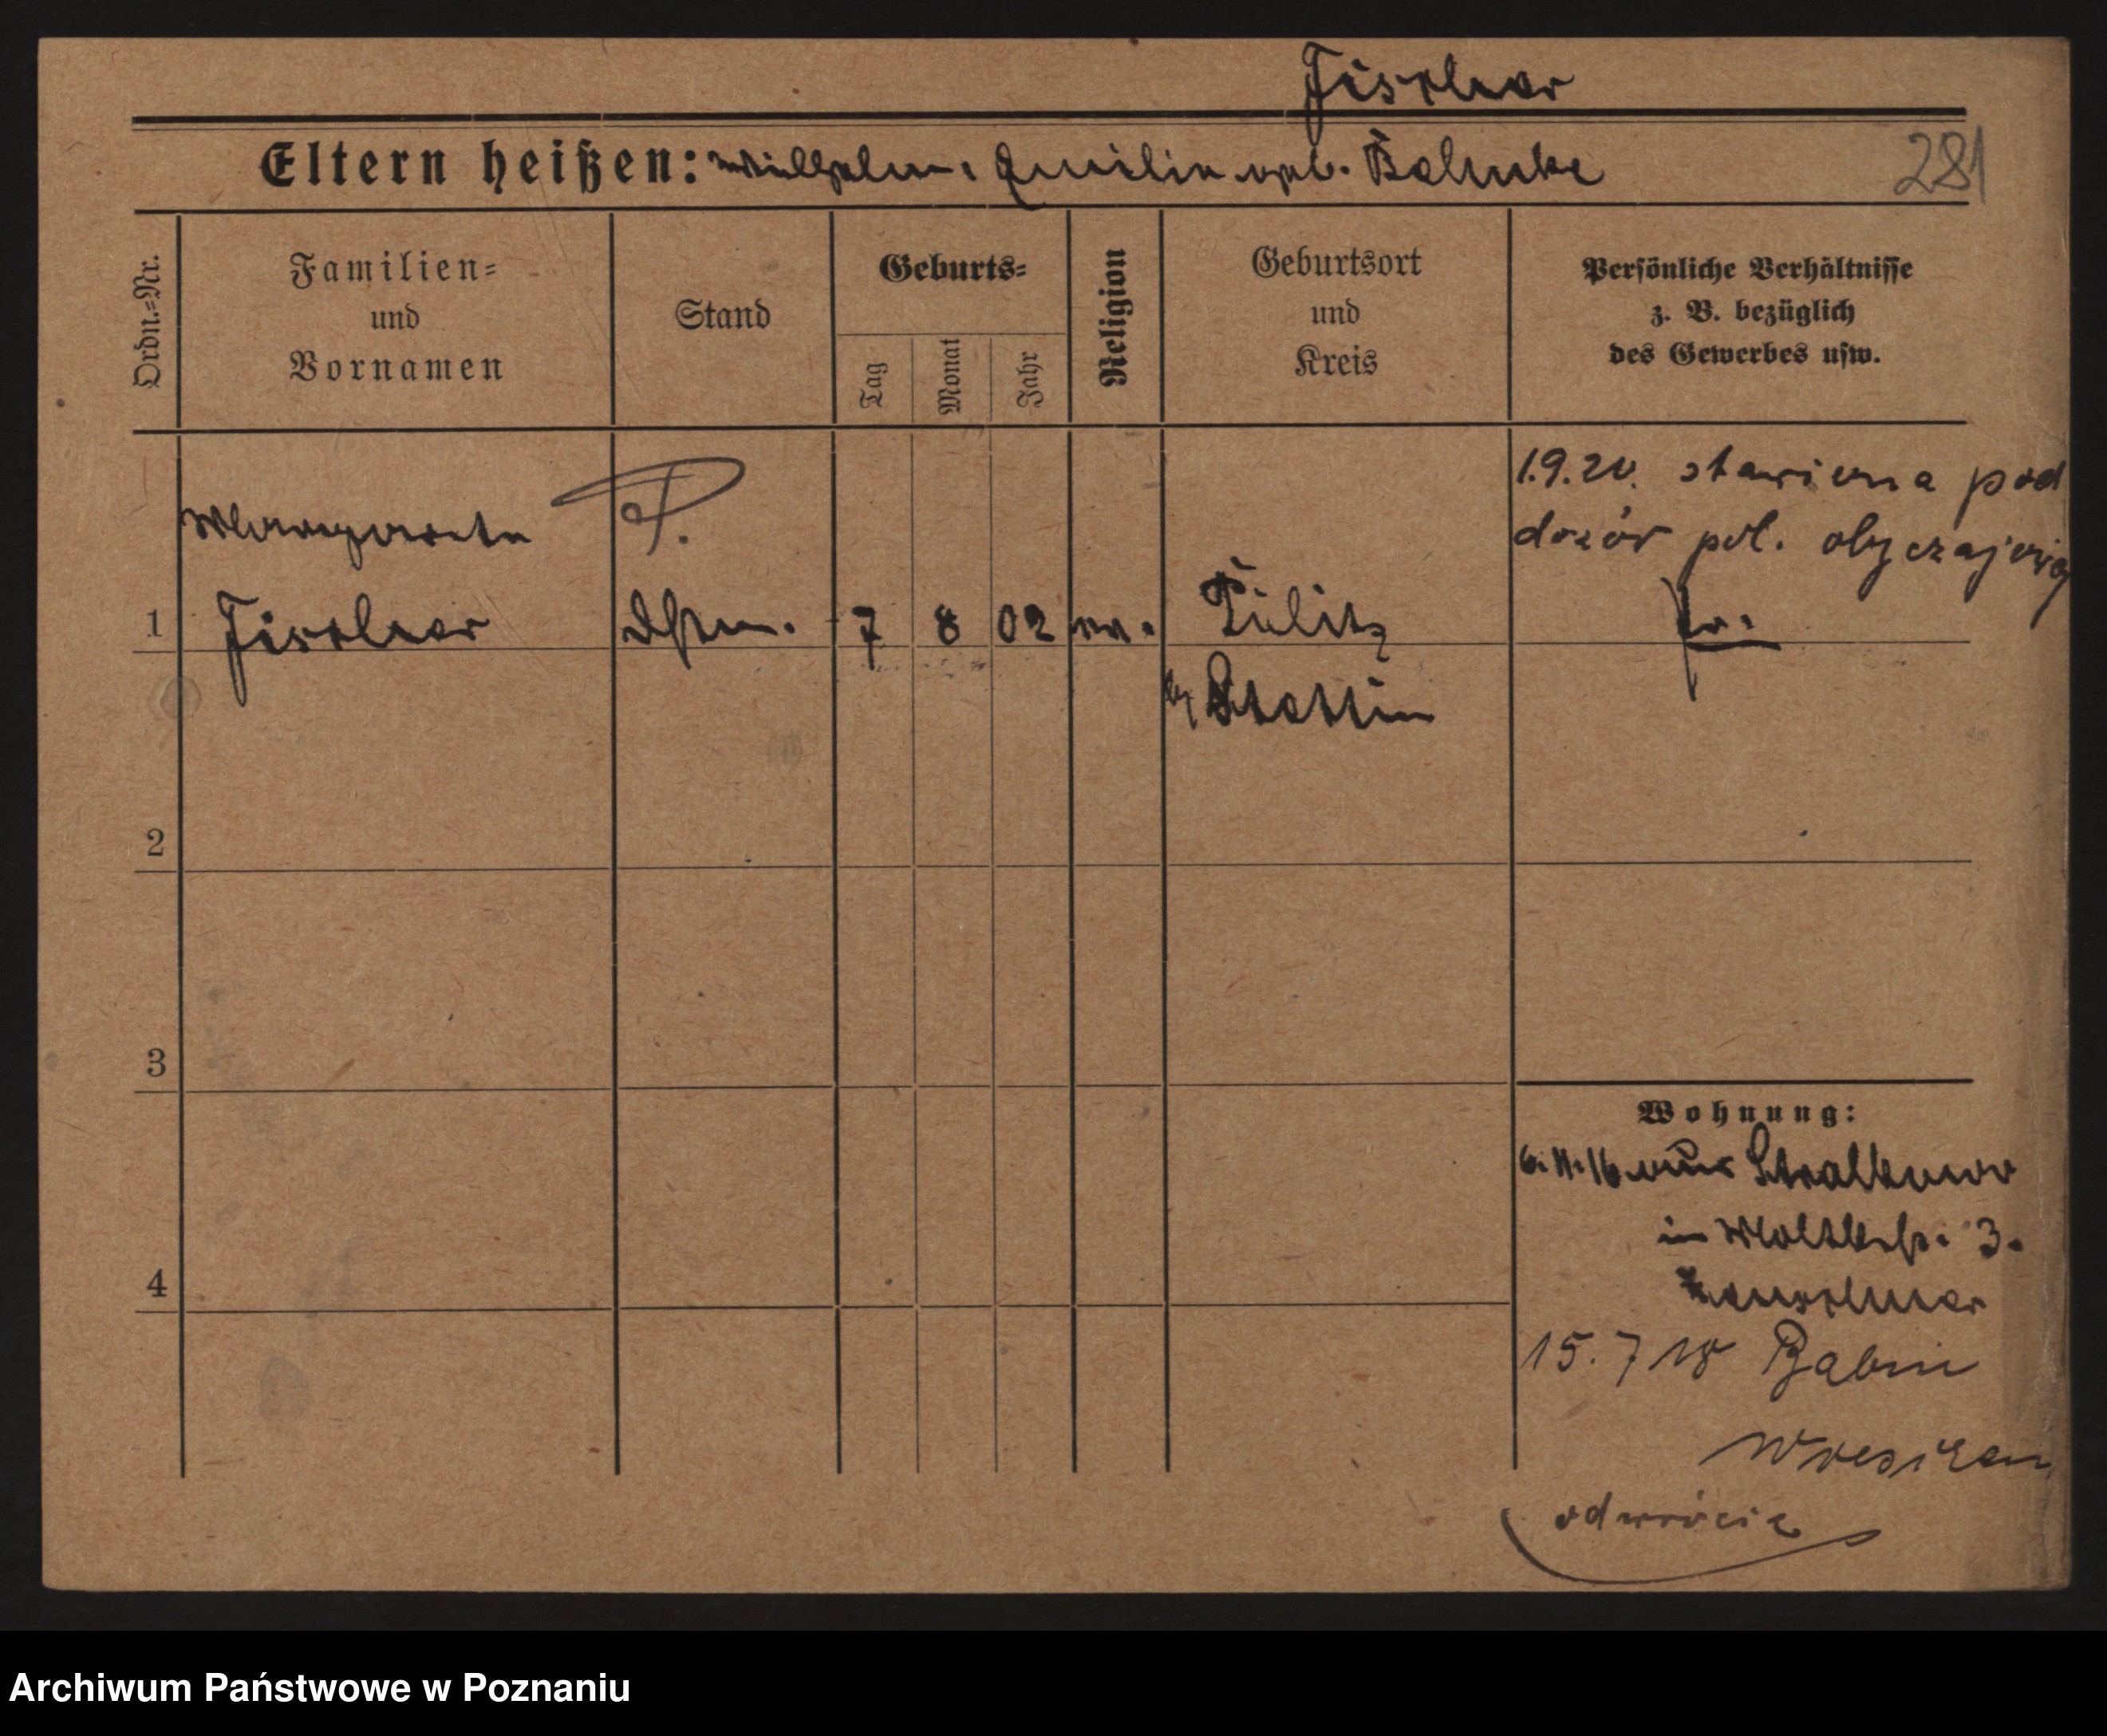 Fischer
Eltern heißen: Wilhelm, Emilie geb. Behnke
281
Ordn.-Nr.
Familien-
und
Vornamen
Stand
Geburts-
Tag
Monat
Jahr
Religion
Geburtsort
und
Kreis
Persönliche Verhältnisse
z. B. bezüglich
des Gewerbes usw.
1.9.20. stawiona pod
dozór pol. obyczajową
Margarete
1 Fischer 7 8 02 ev. Pölitz
Stettin
2
3
Wohnung:
6.11.16 aus Stralkowo
in Moltkestr. 3.
4
15.7 18 Babin
Wreschen
odwrócić
Archiwum Państwowe w Poznaniu